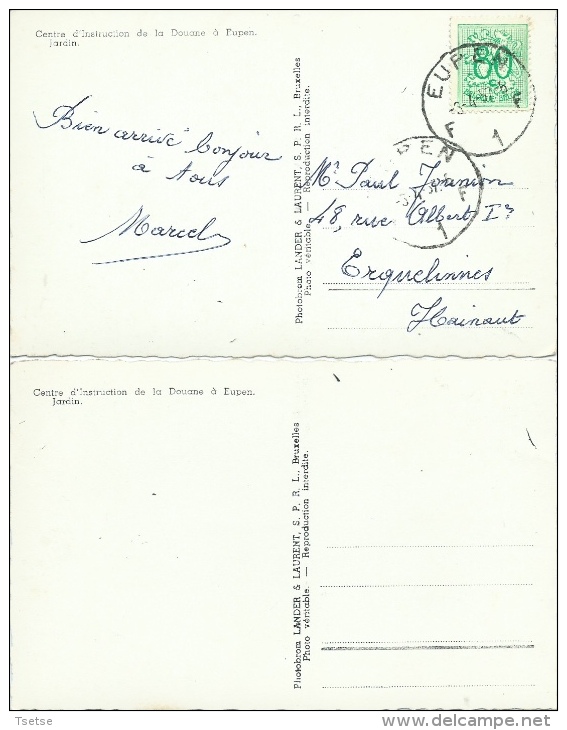 Centre d'Instruction de la Douane à Eupen.
Jardin.
Bien arrivé bonjour
à tous
Marcel
Photobrom LANDER & LAURENT, S. P. R. L., Bruxelles
Photo véritable. — Reproduction interdite.
80
EUPEN
F F
1
EUPEN
F
1
Mr Paul
48, rue Albert Ier
Erquelinnes
Hainaut
Centre d'Instruction de la Douane à Eupen.
Jardin.
Photobrom LANDER & LAURENT, S. P. R. L., Bruxelles
Photo véritable. — Reproduction interdite.
Tsetse
www.delcampe.net